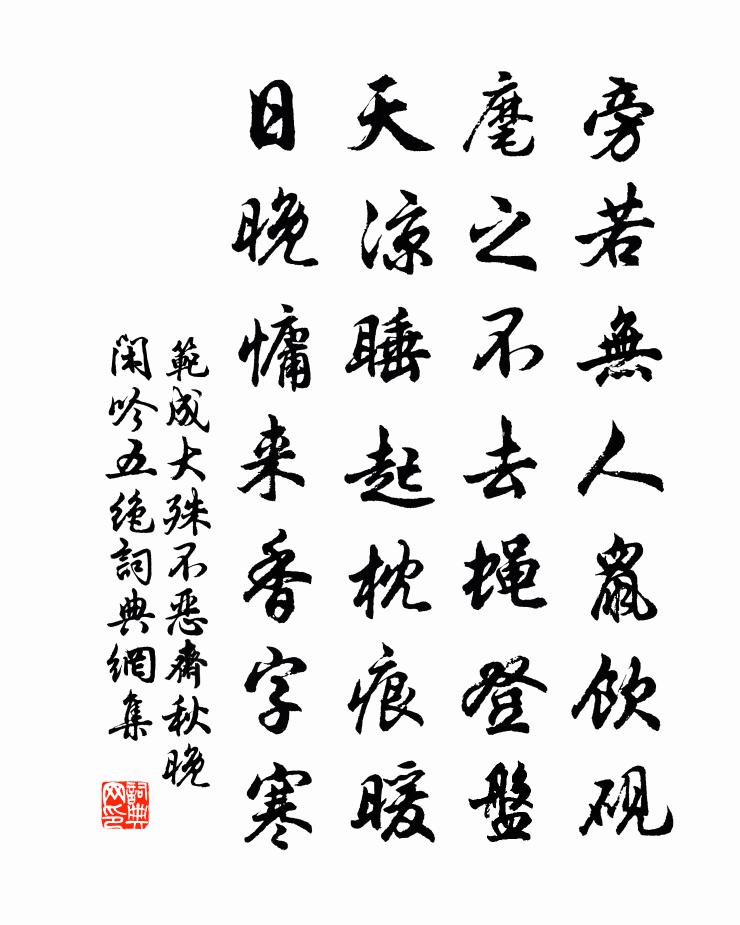 旁若無人鼠飲硯
麾之不去蝇登盤
天涼睡起枕痕暖
日晚慵来香字寒
範成大殊不惡齋秋晚
閑吟五绝詞典網集
詞典
网印